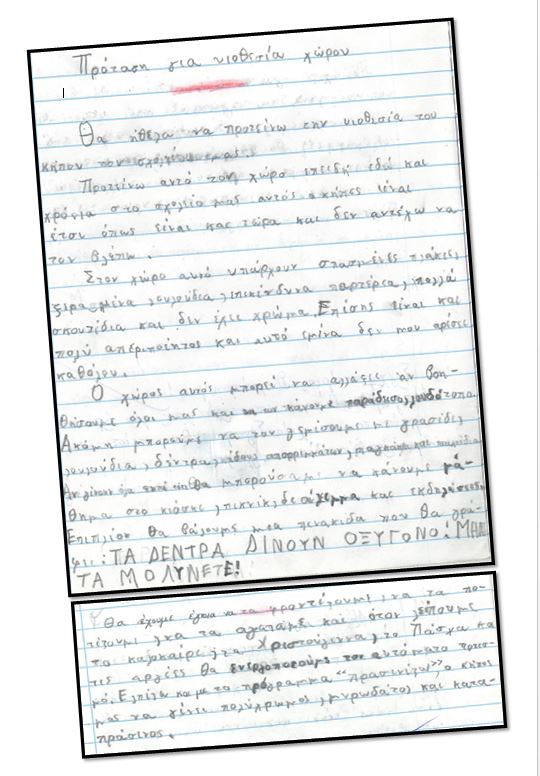 Πρόταση για υιοθεσία χώρου
Θα ήθελα να προτείνω την υιοθεσία του
κήπου του σχολείου μας.
Προτείνω αυτό τον χώρο επειδή εδώ και
χρόνια στο σχολείο μας αυτός ο κήπος είναι
έτσι όπως είναι και τώρα και δεν αντέχω να
τον βλέπω.
Στον χώρο αυτό υπάρχουν σπασμένες πλάκες,
ξεραμένα λουλούδια, επικίνδυνα παρτέρια, πολλά
σκουπίδια και δεν έχει χρώμα. Επίσης είναι και
πολύ απεριποίητος και αυτό εμένα δεν μου αρέσει
καθόλου.
Ο χώρος αυτός μπορεί να αλλάξει αν βοη-
θήσουμε όλοι μας και να
Ακόμη μπορούμε να τον γεμίσουμε με γρασίδι,
λουλούδια, δέντρα, κάδους απορριμμάτων, παγκάκια και
Αν γίνουν όλα αυτά θα μπορούσαμε να κάνουμε μά-
θημα στο κιόσκι, πικνίκ, διάλειμμα και εκδηλώσεις.
Επιπλέον θα βάλουμε μια πινακίδα που θα γρά-
φει: ΤΑ ΔΕΝΤΡΑ ΔΙΝΟΥΝ ΟΞΥΓΟΝΟ! ΜΗΝ
ΤΑ ΜΟΛΥΝΕΤΕ!
Θα έχουμε έγνοια να τα φροντίζουμε, να τα πο-
τίζουμε, να τα αγαπάμε και όταν λείπουμε
το καλοκαίρι, τα Χριστούγεννα, το Πάσχα και
τις αργίες θα ενεργοποιούμε το αυτόματο ποτισ-
μό. Ελπίζω και με το πρόγραμμα "πρασινίζω" ο κήπος
μας να γίνει πολύχρωμος, μυρωδάτος και κατα-
πράσινος.